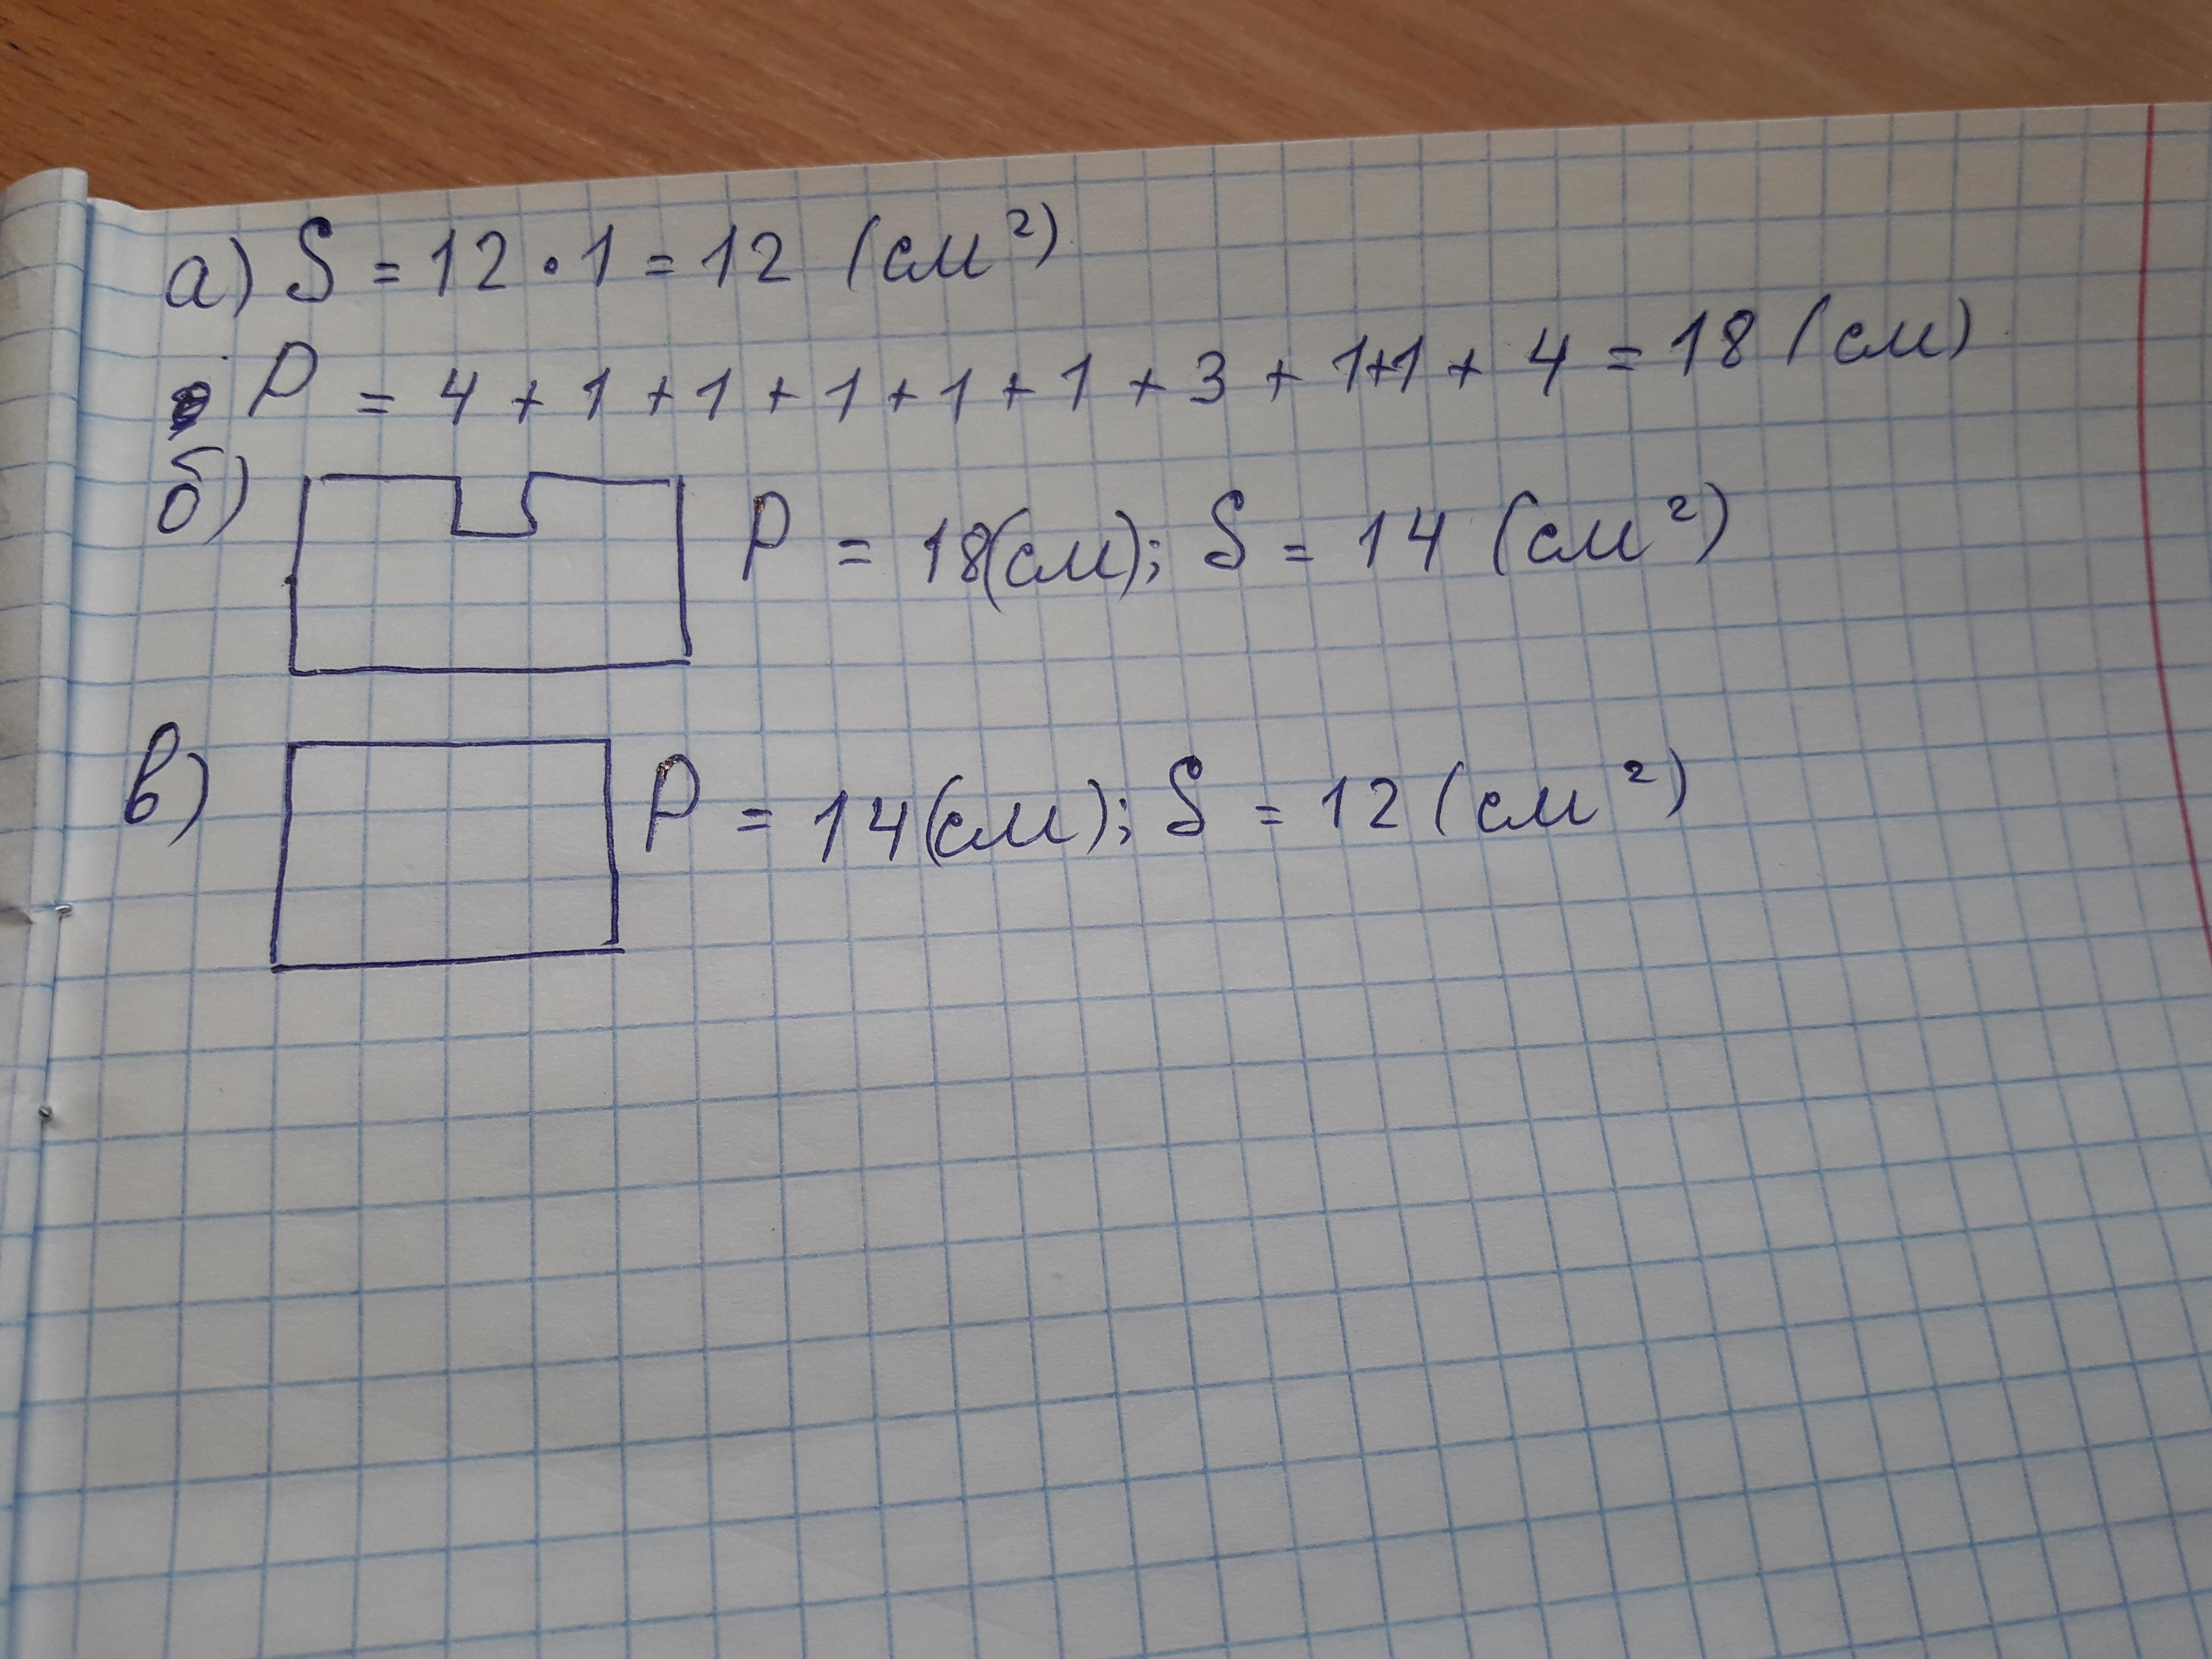 а) S = 12 · 1 = 12 (см²)
P = 4 + 1 + 1 + 1 + 1 + 1 + 3 + 1+1 + 4 = 18 (см)
б) P = 18(см); S = 14 (см²)
в) P = 14(см); S = 12 (см²)